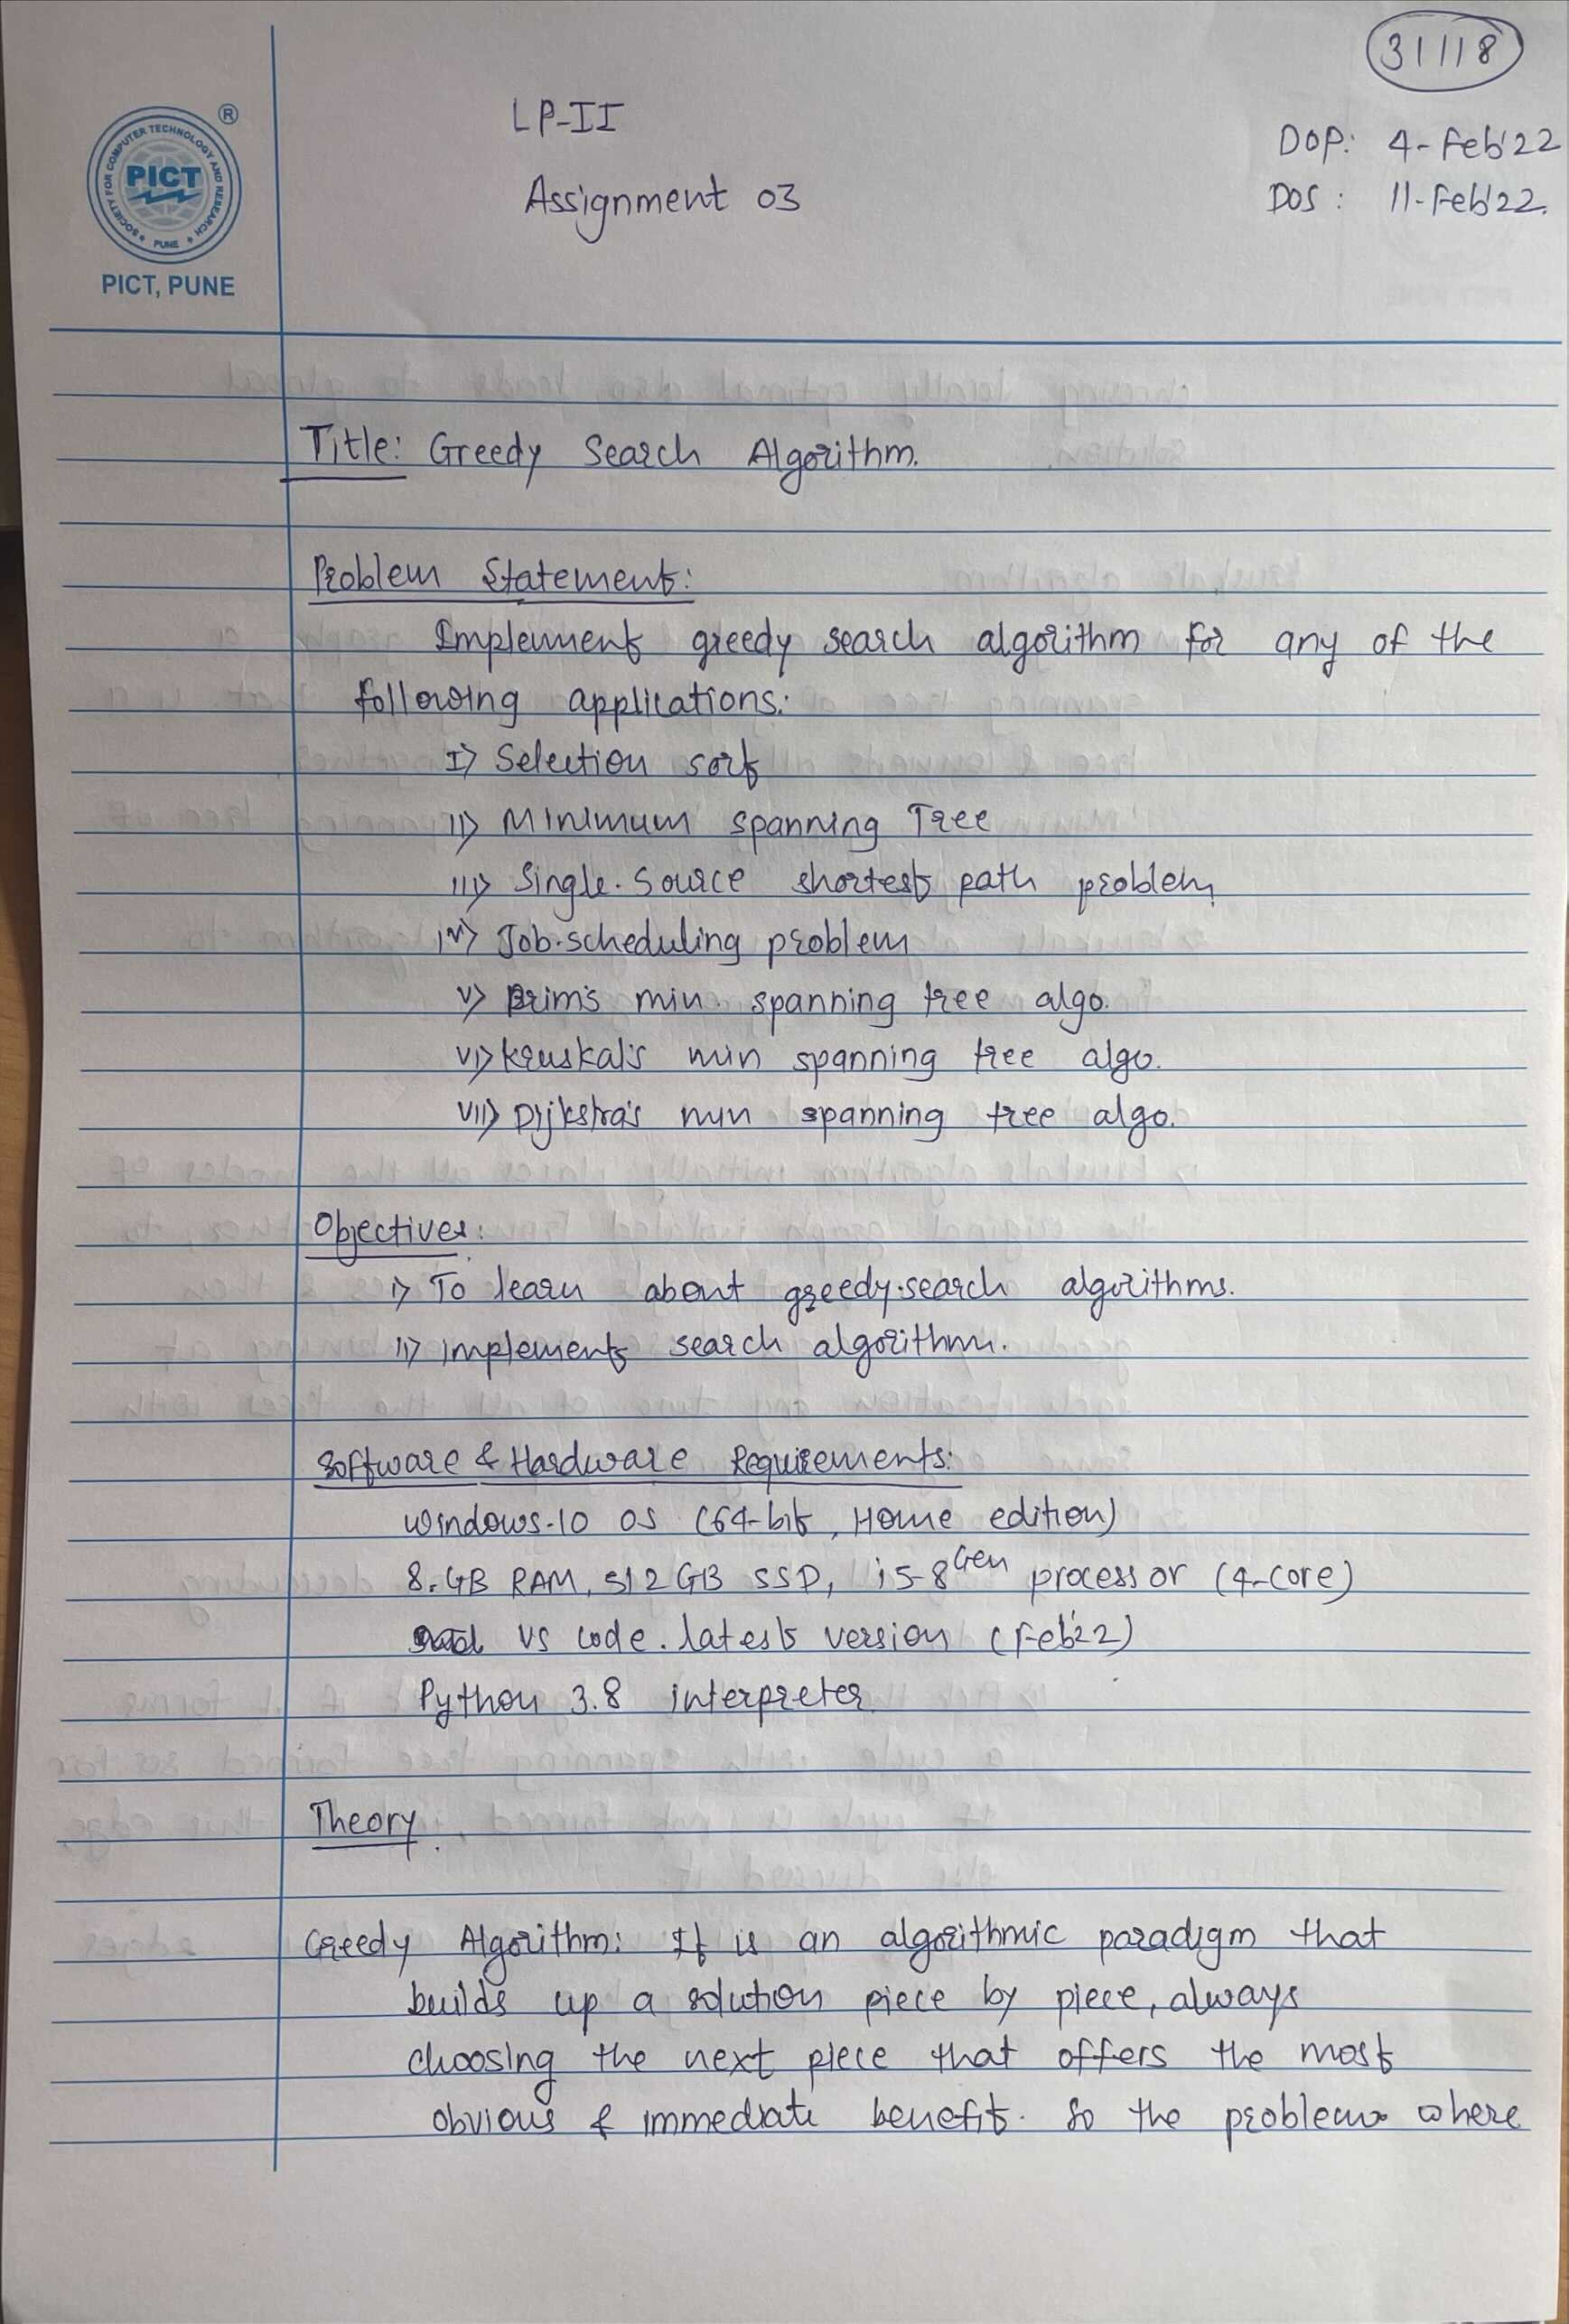 31118
LP-II
DOP: 4-Feb'22
Assignment 03
DOS: 11-Feb'22.
®
SOCIETY FOR COMPUTER TECHNOLOGY AND RESEARCH
PICT
PUNE
PICT, PUNE
Title: Greedy Search Algorithm.
Problem Statement:
Implement greedy search algorithm for any of the
following applications:
I) Selection sort
II) Minimum spanning Tree
III) Single-Source shortest path problem
IV) Job-scheduling problem
V) Prim's min. spanning tree algo.
VI) Kruskal's min spanning tree algo.
VII) Dijkstra's min spanning tree algo.
Objectives:
I) To learn about greedy-search algorithms.
II) Implements search algorithm.
Software & Hardware Requirements:
Windows-10 OS (64-bit, Home edition)
8-GB RAM, 512 GB SSD, i5-8Gen processor (4-core)
VS code-latest version (Feb'22)
Python 3.8 interpreter
Theory:
Greedy Algorithm: It is an algorithmic paradigm that
builds up a solution piece by piece, always
choosing the next piece that offers the most
obvious & immediate benefit. So the problems where